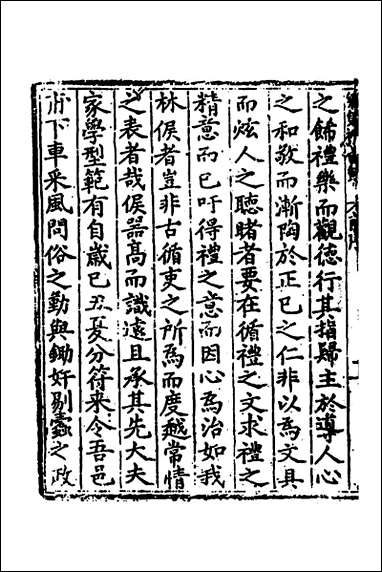 之餙禮樂而觀德行其指歸主於導人心
之和敬而漸陶於正巳之仁非以為文具
而炫人之聽睹者要在循禮之文求禮之
精意而巳吁得禮之意而因心為治如我
林侯者豈非古循吏之所為而度越常情
之表者哉侯器高而識遠且承其先大夫
家學型範有自歲巳丑夏分符来令吾邑
甫下車采風問俗之勤與鋤奸剔蠹之政